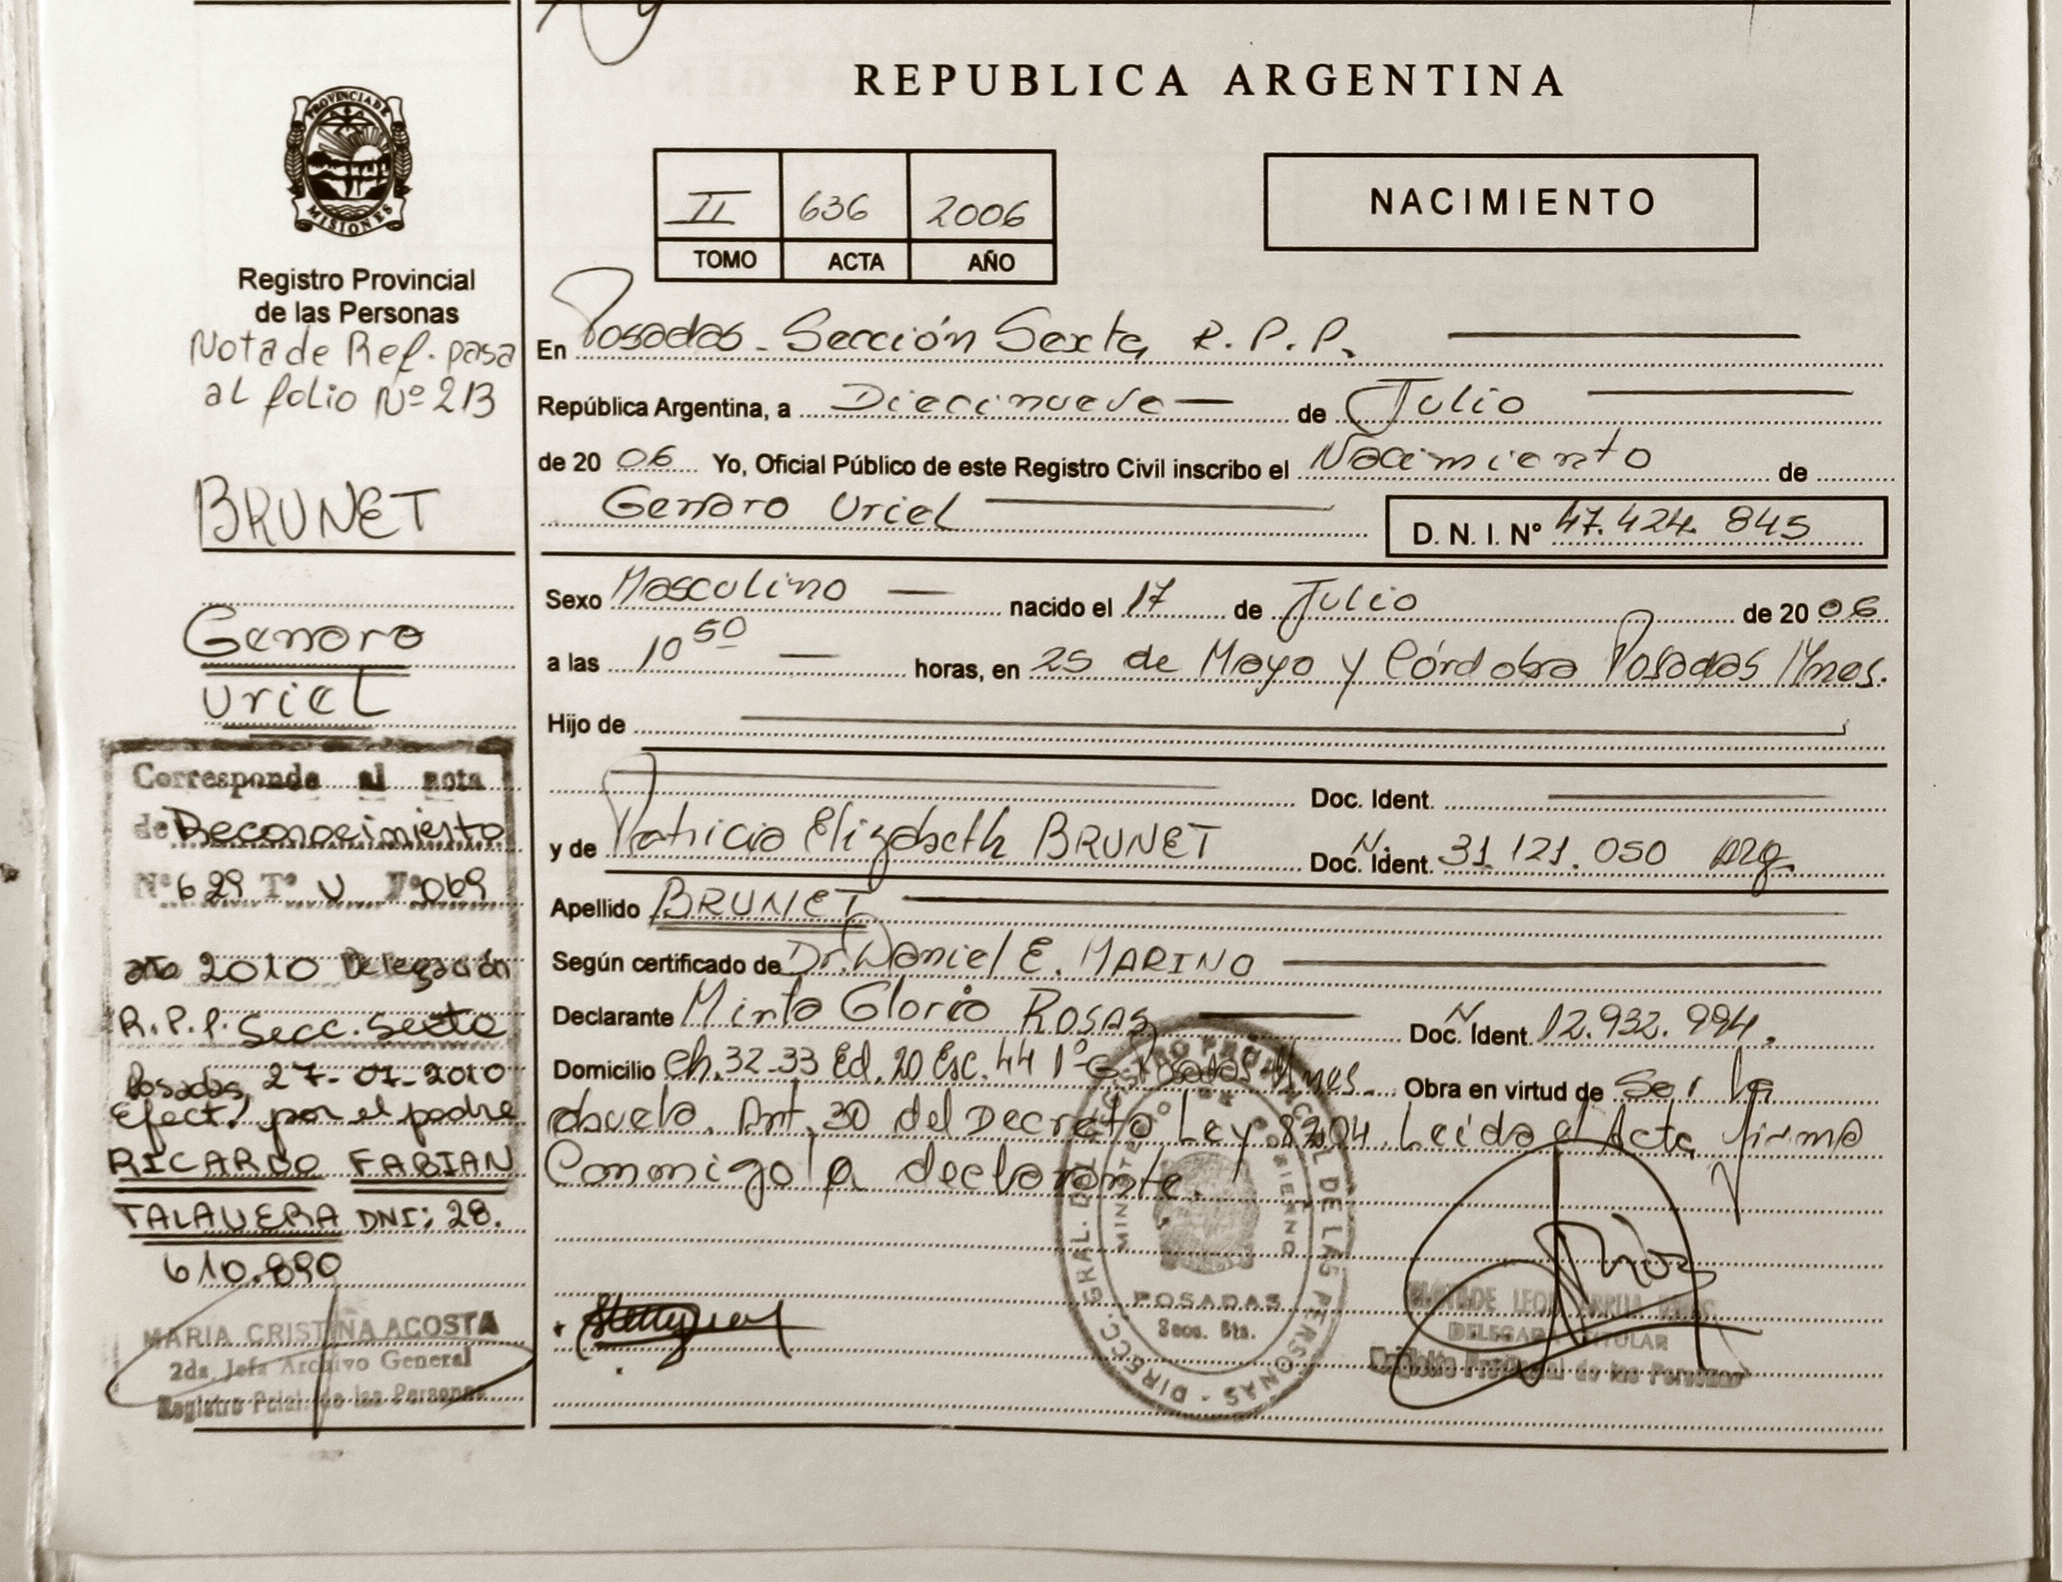 REPUBLICA ARGENTINA
PROVINCIA DE
MISIONES
Registro Provincial
de las Personas
Nota de Ref. pasa
al folio Nº 213
BRUNET
Genaro
Uriel
Corresponde al acta
de Reconocimiento
Nº 629 Tº V Fº 069
año 2010 Delegación
R.P.P. Secc. Sexta
Posadas, 27-07-2010
Efect. por el padre
RICARDO FABIAN
TALAVERA DNI: 28.
610.890
MARIA CRISTINA ACOSTA
2da. Jefa Archivo General
Registro Pcial. de las Personas
II 636 2006
TOMO ACTA AÑO
NACIMIENTO
En Posadas - Sección Sexta R. P. P.
República Argentina, a Diecinueve de Julio
de 20 06 Yo, Oficial Público de este Registro Civil inscribo el Nacimiento de
Genaro Uriel D. N. I. Nº 47.424.845
Sexo Masculino nacido el 17 de Julio de 20 06
a las 10 50 horas, en 25 de Mayo y Córdoba Posadas Mnes.
Hijo de
Doc. Ident.
y de Patricia Elizabeth BRUNET Doc. N. Ident. 31.121.050 Arg.
Apellido BRUNET
Según certificado de Dr. Daniel E. MARINO
Declarante Mirta Gloria ROSAS Doc. N Ident. 12.932.994.
Domicilio Ch. 32-33 Ed. 20 Esc. 44 1º Posadas Mnes. Obra en virtud de Ser la
abuela. Art. 30 del Decreto Ley 8204. Leída el Acta firma
Conmigo la declarante.
DIRECC. GRAL. DEL REGISTRO PROVINCIAL DE LAS PERSONAS
MINISTERIO DE GOBIERNO
POSADAS
Secc. 6ta.
DELEGADA TITULAR
Registro Provincial de las Personas